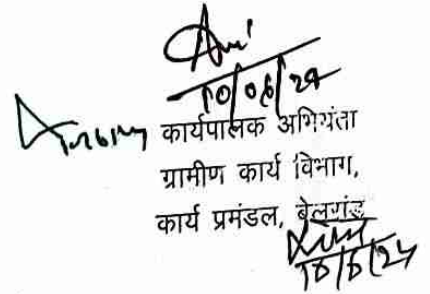 10/06/24
कार्यपालक अभियंता
ग्रामीण कार्य विभाग,
कार्य प्रमंडल, बेलागंज
10/6/24